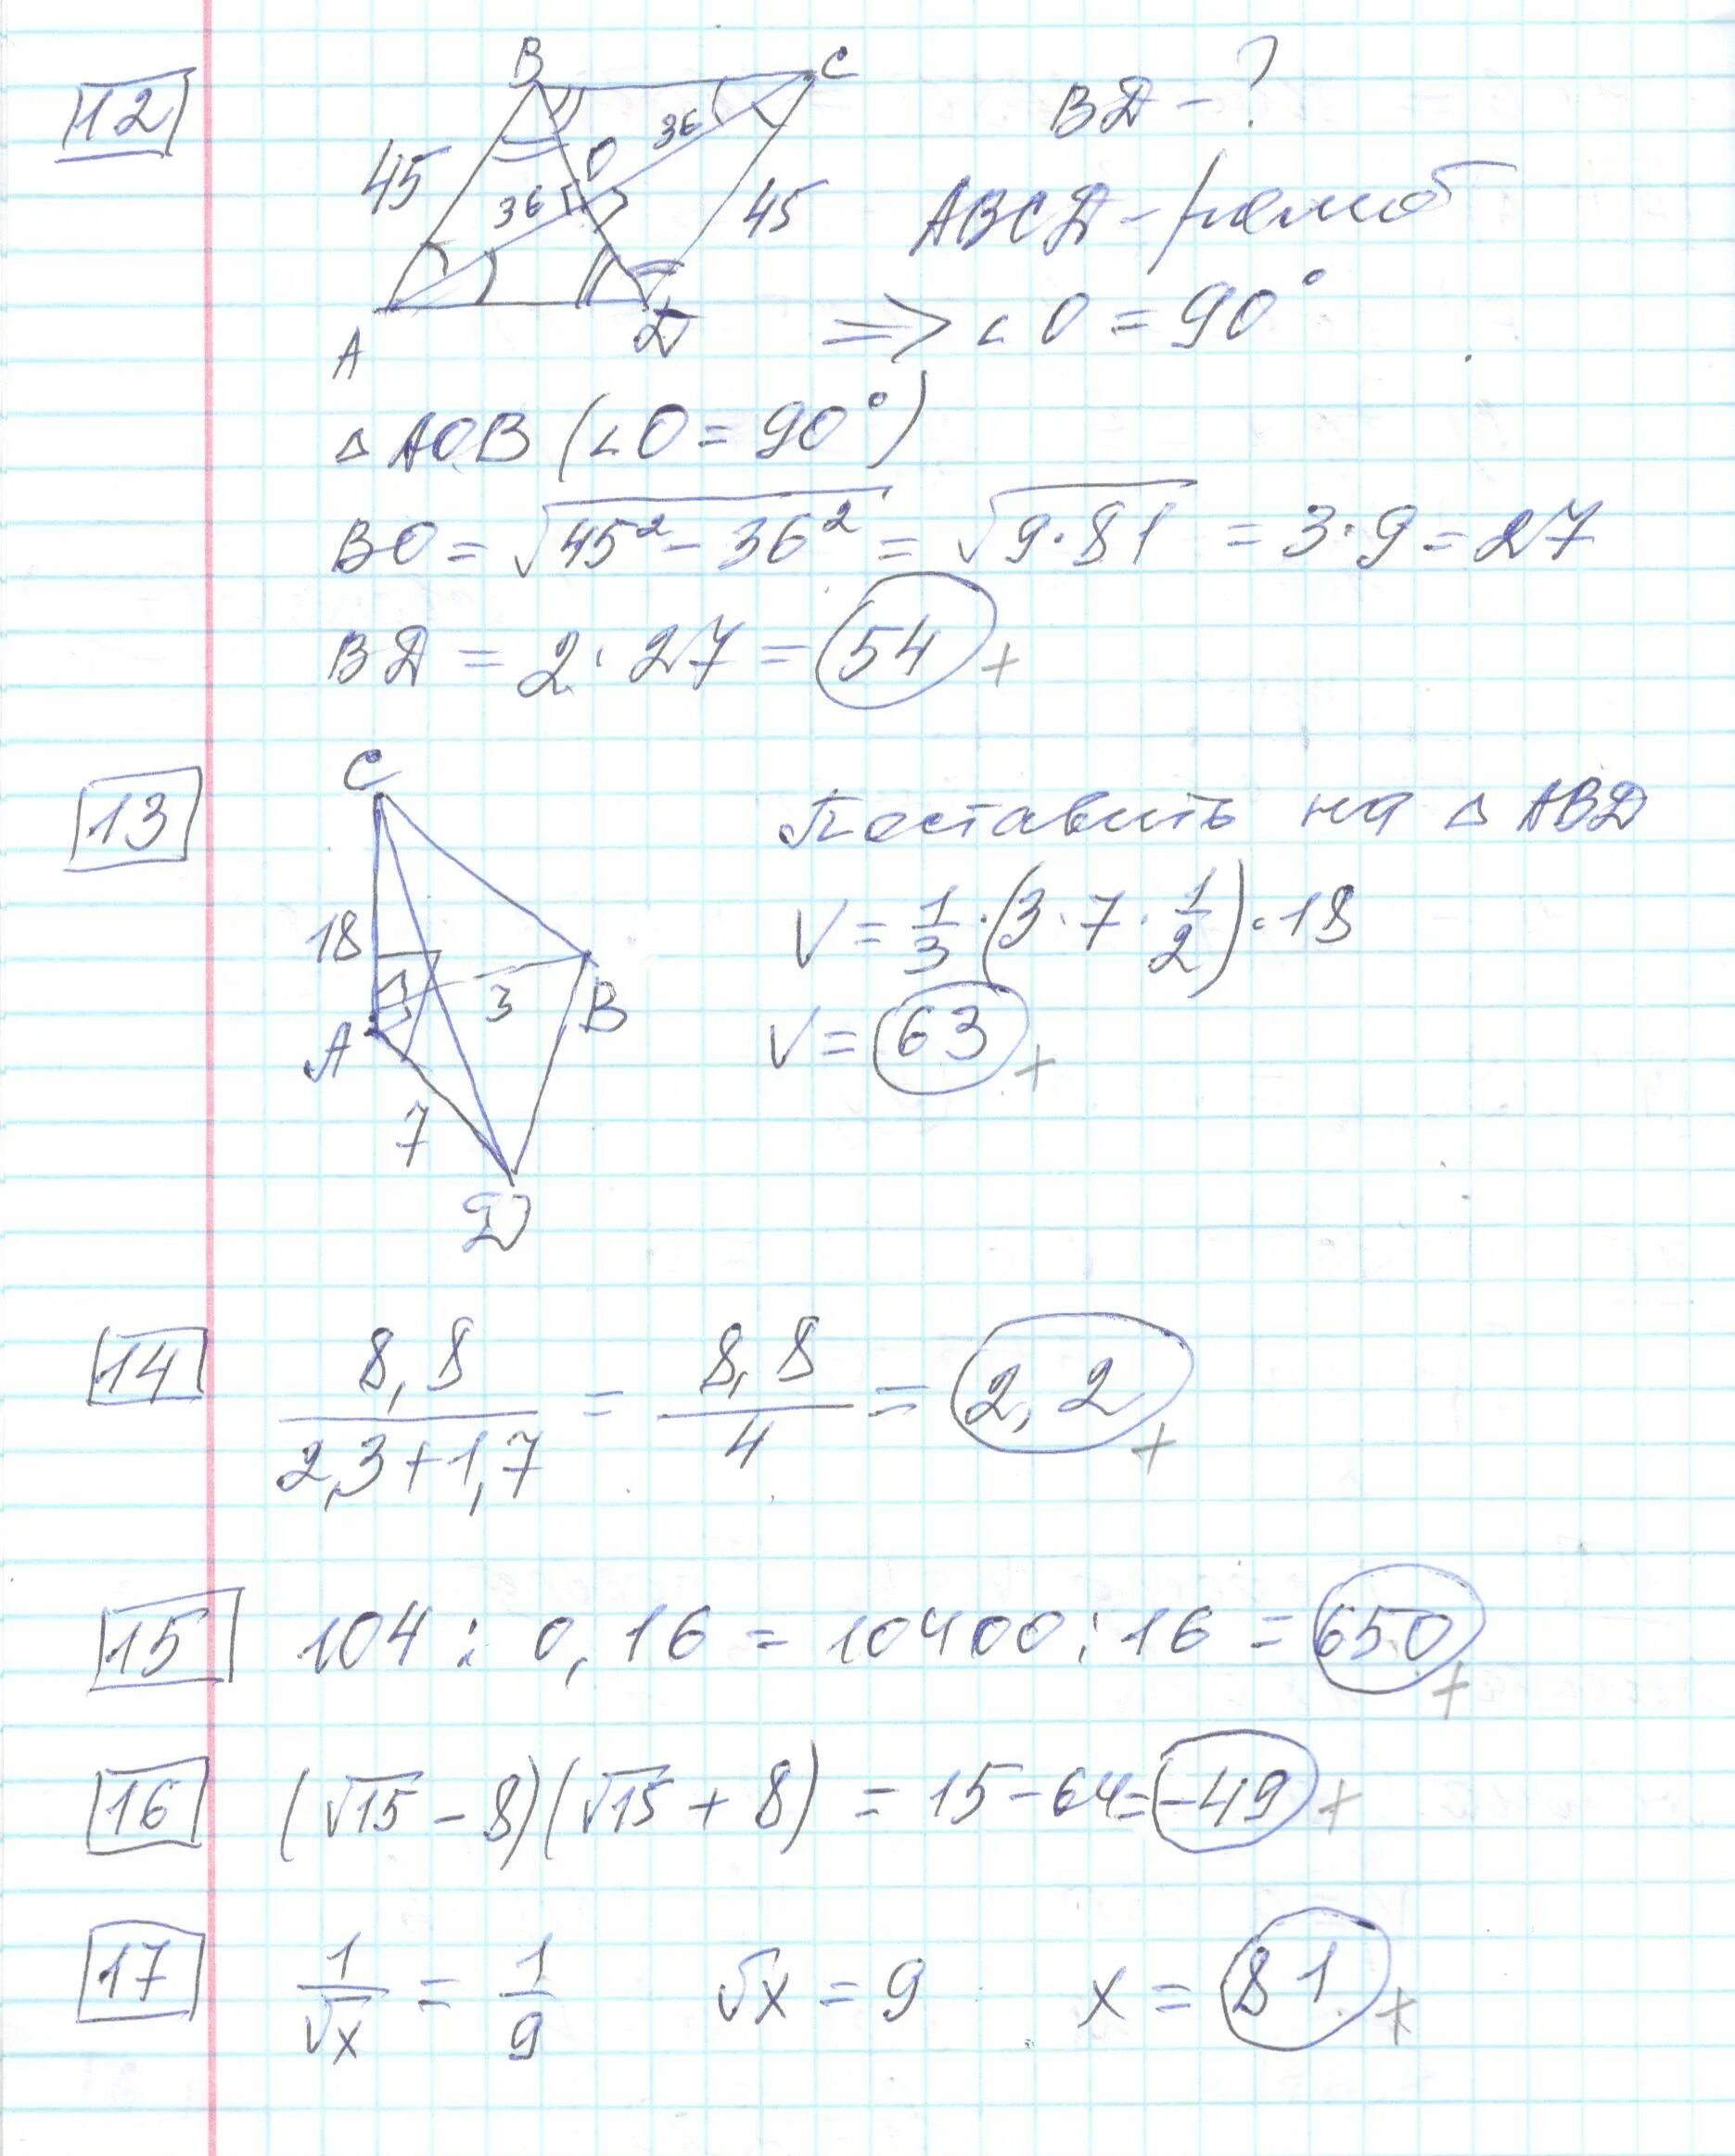 12
B C
BD - ?
45 36 O 36 45
ABCD - ромб
A D
=> ∠O = 90°
△ AOB (∠O = 90°)
BO = √(45² - 36²) = √(9·81) = 3·9 = 27
BD = 2·27 = 54 +
13
C
Поставить на △ ABD
18
V = 1/3 · (3·7·1/2) · 18
3 B
A
V = 63 +
7
D
14 8,8/(2,3+1,7) = 8,8/4 = 2,2 +
15 104 : 0,16 = 10400 : 16 = 650 +
16 (√15 - 8)(√15 + 8) = 15 - 64 = -49 +
17 1/√x = 1/9 √x = 9 x = 81 +